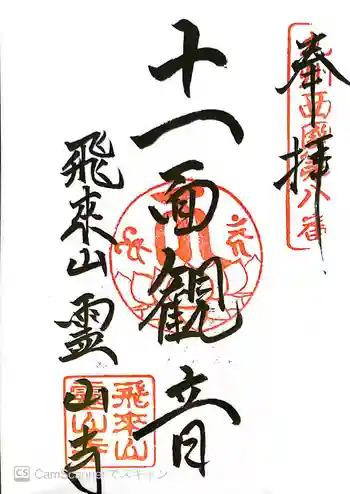 奉拝
西國第八番
十一面観音
飛來山霊山寺
飛來山
霊山寺
CS CamScannerでスキャン